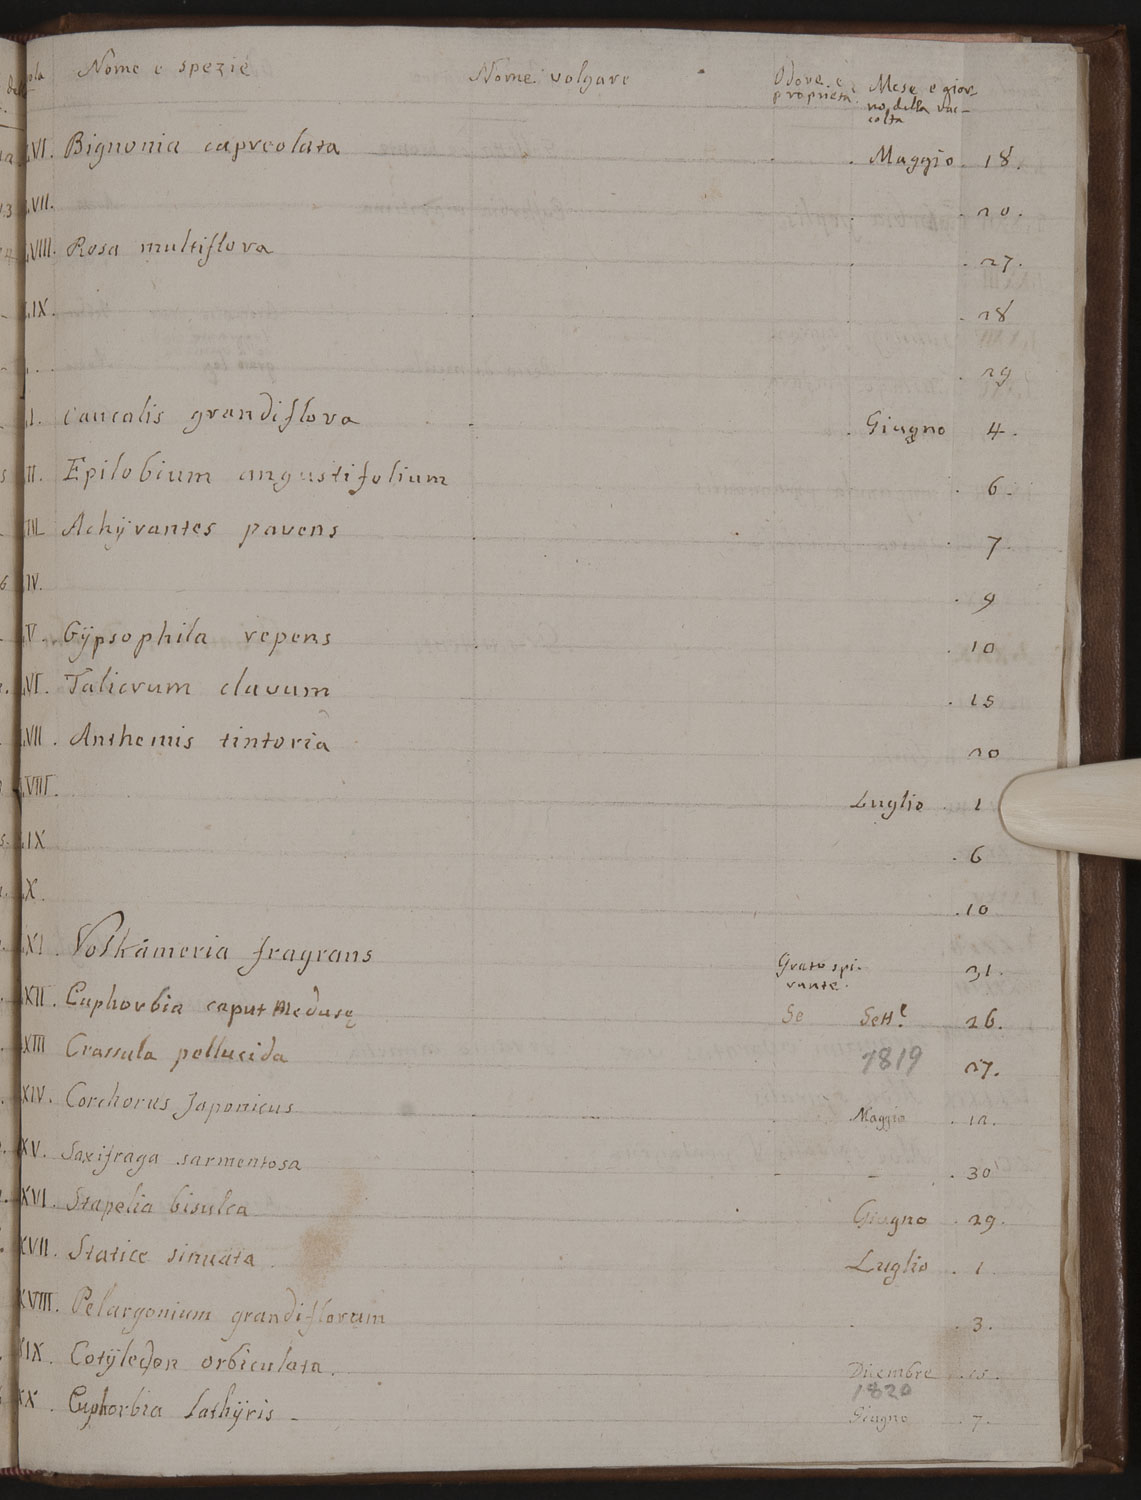 Nome e spezie Nome volgare Odore e proprietà Mese e gior-
no della rac-
colta
VI. Bignonia capreolata Maggio 18.
VII. 20.
VIII. Rosa multiflora 27.
IX. 28
29
I. Caucalis grandiflora Giugno 4.
II. Epilobium angustifolium 6.
III. Achÿrantes parens 7
IV. 9
V. Gÿpsophila repens 10
VI. Talictrum clavum 15
VII. Anthemis tintoria 20
VIII. Luglio 1
IX 6
X. 10
XI. Volkameria fragrans Grato spi-
rante. 31.
XII. Euphorbia caput Medusę Se Sett.e 26.
XIII Crassula pellucida 1819 27.
XIV. Corchorus Japonicus Maggio 12.
XV. Saxifraga sarmentosa - 30
XVI. Stapelia bisulca Giugno 29.
XVII. Statice sinuata Luglio 1
XVIII. Pelargonium grandiflorum 3.
XIX. Cotÿledon orbiculata. Dicembre 15.
1820
XX. Euphorbia Lathÿris - Giugno 7.